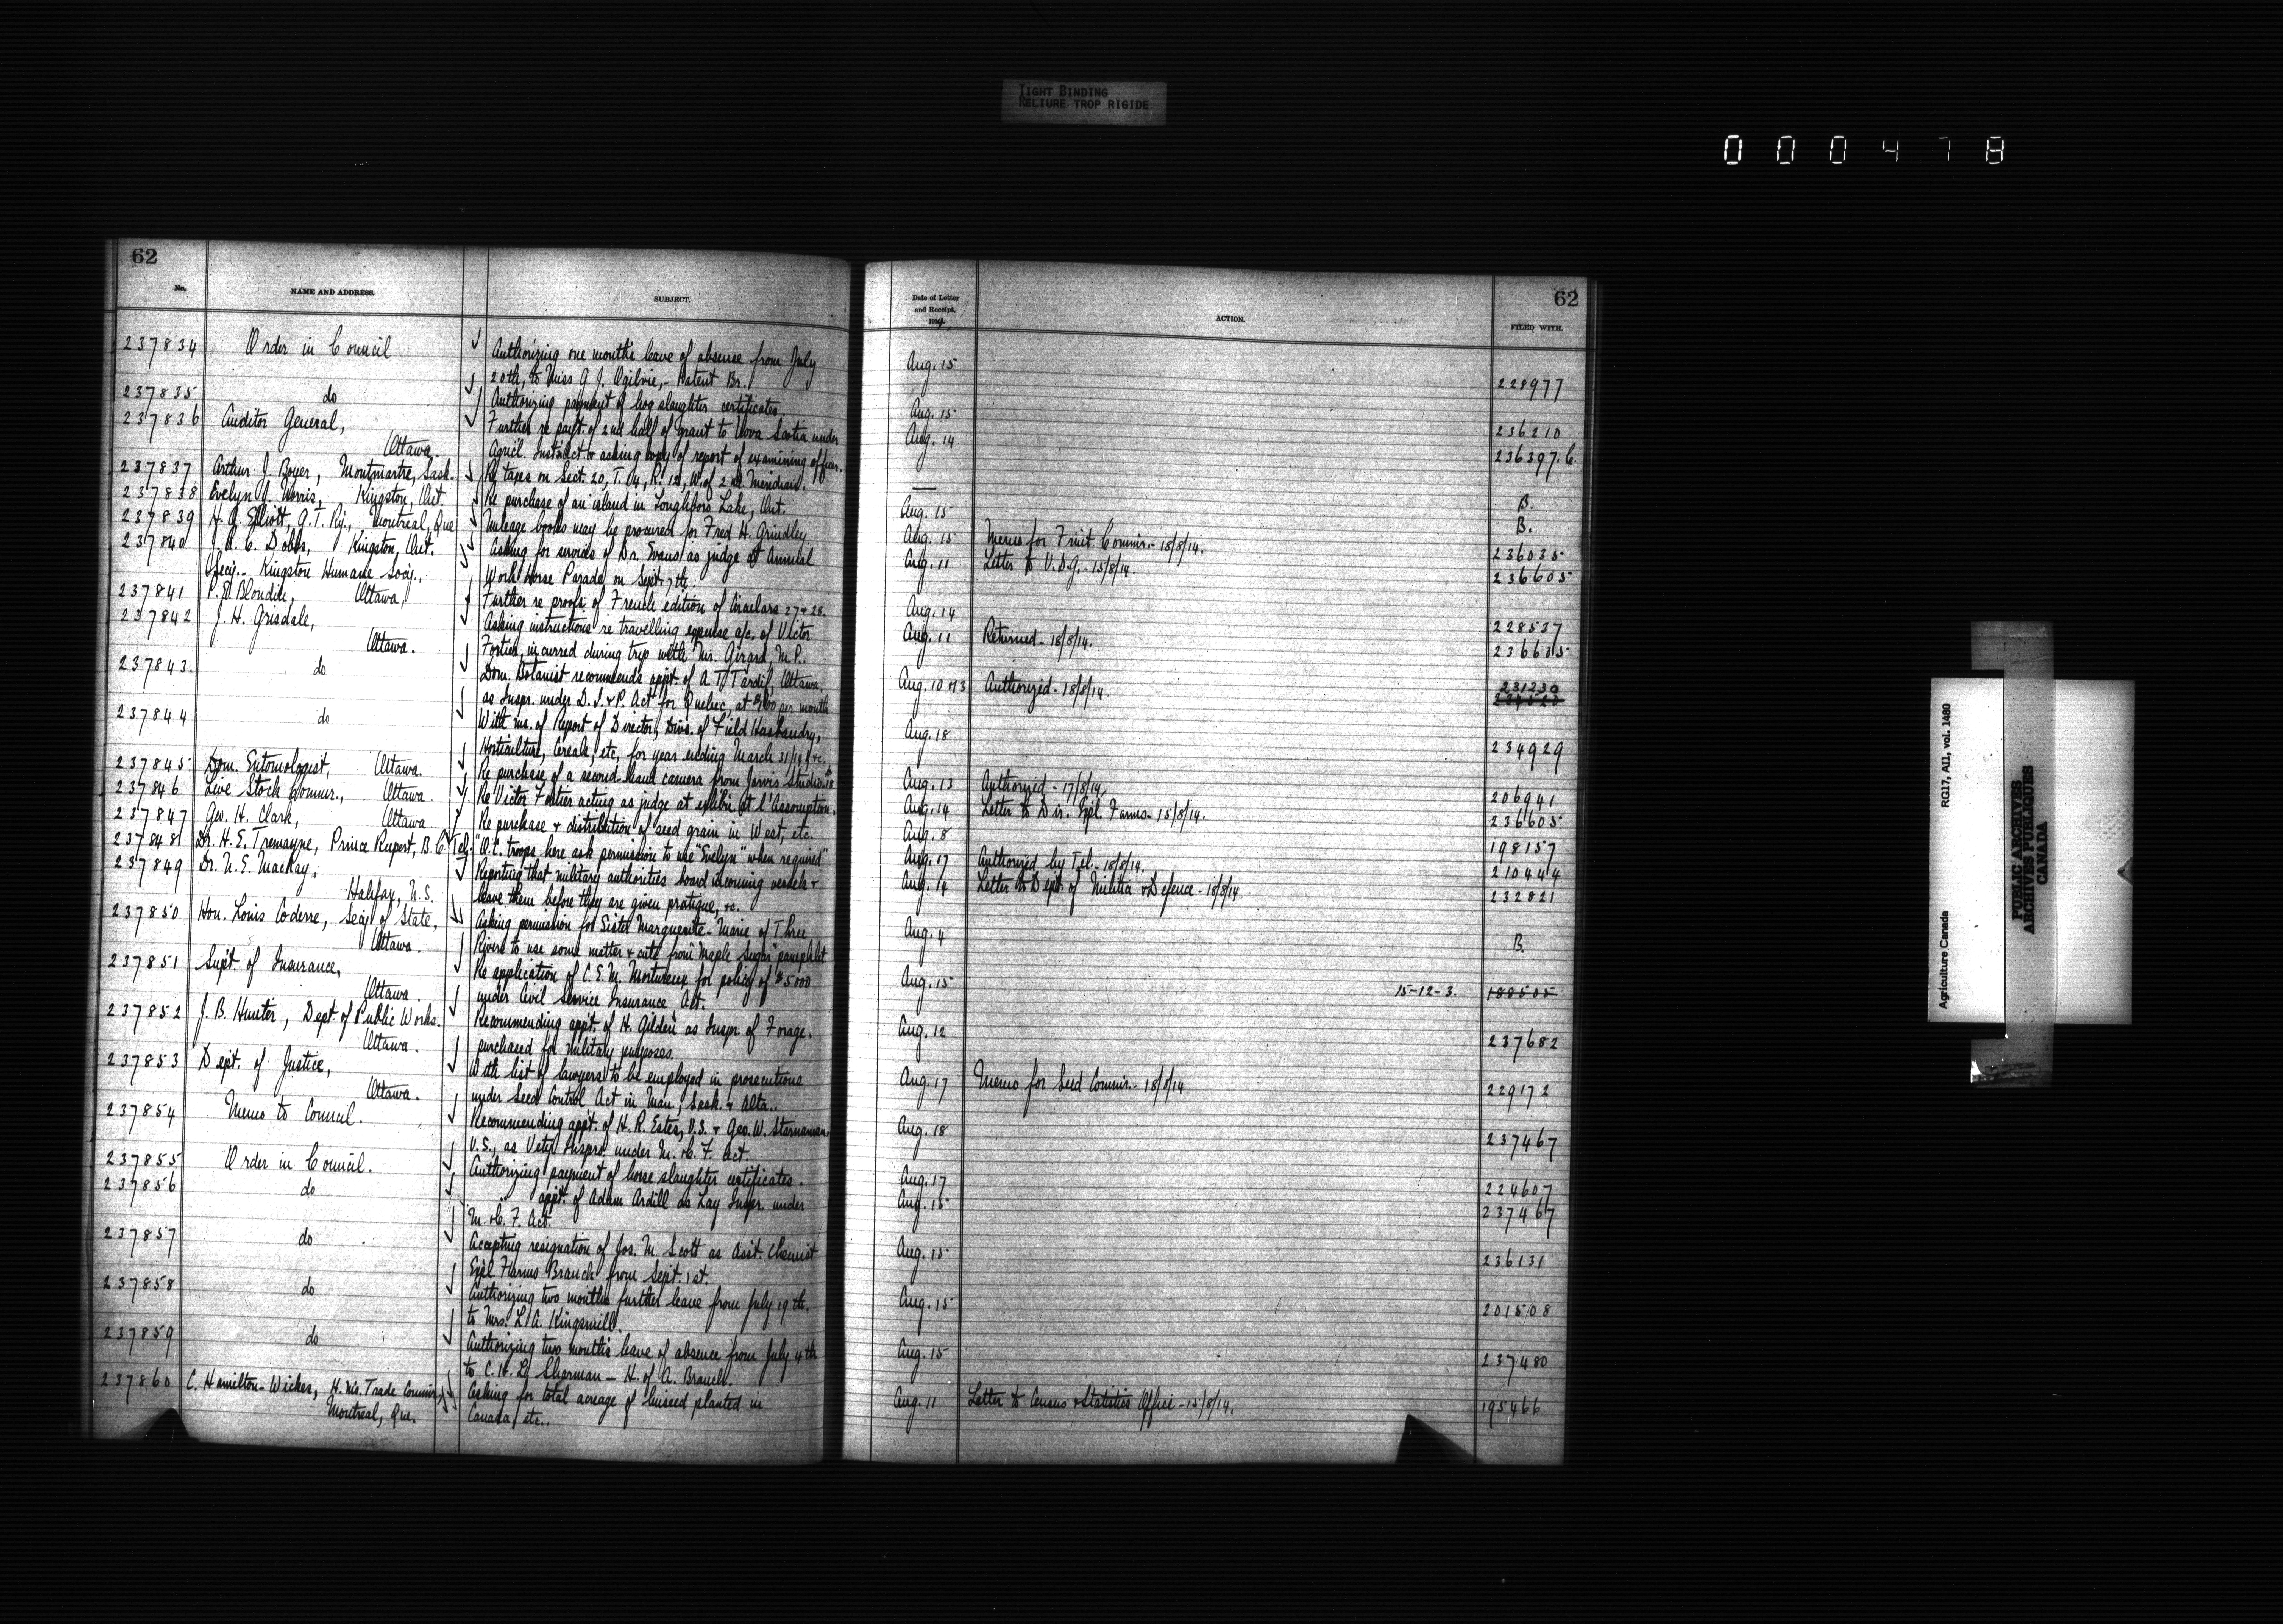 TIGHT BINDING
RELIURE TROP RIGIDE
000478
62
No.
NAME AND ADDRESS.
SUBJECT.
237834 Order in Council Authorizing one month's leave of absence from July
20th, to Miss G. J. Ogilvie, - Patent Br.
237835 do Authorizing payment of hog slaughter certificates.
237836 Auditor General, Further re pait. of 2nd half of grant to Nova Scotia under
Ottawa. Agricl. Inst. Act & asking copy of report of examining officer.
237837 Arthur J. Boyer, Montmartre, Sask. Re taxes on Sect. 20, T. 14, R. 12, W. of 2nd Meridian.
237838 Evelyn J. Norris, Kingston, Ont. Re purchase of an island in Loughboro Lake, Ont.
237839 H. G. Elliott, G. T. Ry., Montreal, Que Mileage books may be procured for Fred H. Grindley
237840 J. R. C. Dobbs, Kingston, Ont. Asking for services of Dr. Evans as judge at Annual
Secy. - Kingston Humane Socy., Work Horse Parade on Sept. 7th.
237841 P. E. Blondin, Ottawa, Further re proofs of French edition of Circulars 27 & 28.
237842 J. H. Grisdale, Asking instructions re travelling expense a/c. of Victor
Ottawa. Fortier, incurred during trip with Mr. Girard, M.P..
237843. do Dom. Botanist recommends appt. of A. T. Tardif, Ottawa,
as Inspr. under D. I. & P. Act for Quebec, at $100 per month
237844 do With ms. of Report of Director, Divs. of Field Husbandry,
Horticulture, Cereals, etc, for year ending March 31/19
237845 Dom. Entomologist, Ottawa. Re purchase of a second-hand camera from Jarvis Studio.
237846 Live Stock Commr., Ottawa. Re Victor Fortier acting as judge at exhibn. at l'Assomption.
237847 Geo. H. Clark, Ottawa. Re purchase & distribution of seed grain in West, etc.
237848 Dr. H. E. Tremayne, Prince Rupert, B.C. Tel. "O.C. troops here ask permission to use "Evelyn" when required"
237849 Dr. N. E. MacKay, Reporting that military authorities board incoming vessels &
Halifax, N.S. leave them before they are given pratique, &c.
237850 Hon. Louis Coderre, Secy of State, Asking permission for Sister Marguerite-Marie of Three
Ottawa. Rivers to use some matter & cuts from "Maple Sugar" pamphlet
237851 Supt. of Insurance, Re application of C. E. M. for policy of $5000
Ottawa. under Civil Service Insurance Act.
237852 J. B. Hunter, Dept. of Public Works. Recommending appt. of H. Gilden as Inspr. of Forage,
Ottawa. purchased for military purposes.
237853 Dept. of Justice, With list of lawyers to be employed in prosecutions
Ottawa. under Seed Control Act in Man., Sask. & Alta..
237854 Memo to Council. Recommending appt. of H. R. Estes, V.S. & Geo. W. Starnaman,
V.S., as Vety. Insprs. under M. & C. F. Act.
237855 Order in Council. Authorizing payment of horse slaughter certificates.
237856 do " appt. of Adam Ardill as Lay Inspr. under
M. & C. F. Act.
237857 do Accepting resignation of Jos. M. Scott as Asst. Chemist
Expl. Farms Branch from Sept. 1st.
237858 do Authorizing two months further leave from July 19th.
to Mrs. L. A. Kingsmill.
237859 do Authorizing two month's leave of absence from July 4th
to C. H. L. Sharman - H. of A. Branch.
237860 C. Hamilton-Wickes, H. M's. Trade Commr., Asking for total acreage of linseed planted in
Montreal, Que. Canada, etc..
62
Date of Letter
and Receipt,
191
ACTION.
FILED WITH.
Aug. 15 228977
Aug. 15 236210
Aug. 14 236397.C.
— B.
Aug. 15 B.
Aug. 15 Memo for Fruit Commr. - 18/8/14. 236035
Aug. 11 Letter to V.D.G. - 15/8/14. 236605
Aug. 14 228537
Aug. 11 Returned - 18/8/14. 236605
Aug. 10 & 13 Authorized - 18/8/14. 231230
Aug. 18 234929
Aug. 13 Authorized - 17/8/14. 206941
Aug. 14 Letter to Dir. Expl. Farms - 15/8/14. 236605
Aug. 8 198157
Aug. 17 Authorized by Tel. - 18/8/14. 210444
Aug. 14 Letter to Dept. of Militia & Defence - 18/8/14 232821
Aug. 4 B.
Aug. 15 15-12-3. 188505
Aug. 12 237682
Aug. 17 Memo for Seed Commr. - 18/8/14 229172
Aug. 18 237467
Aug. 17 224607
Aug. 15 237467
Aug. 15 236131
Aug. 15 201508
Aug. 15 237480
Aug. 11 Letter to Census & Statistics Office - 15/8/14. 195466
Agriculture Canada RG17, AII, vol. 1480
PUBLIC ARCHIVES
ARCHIVES PUBLIQUES
CANADA